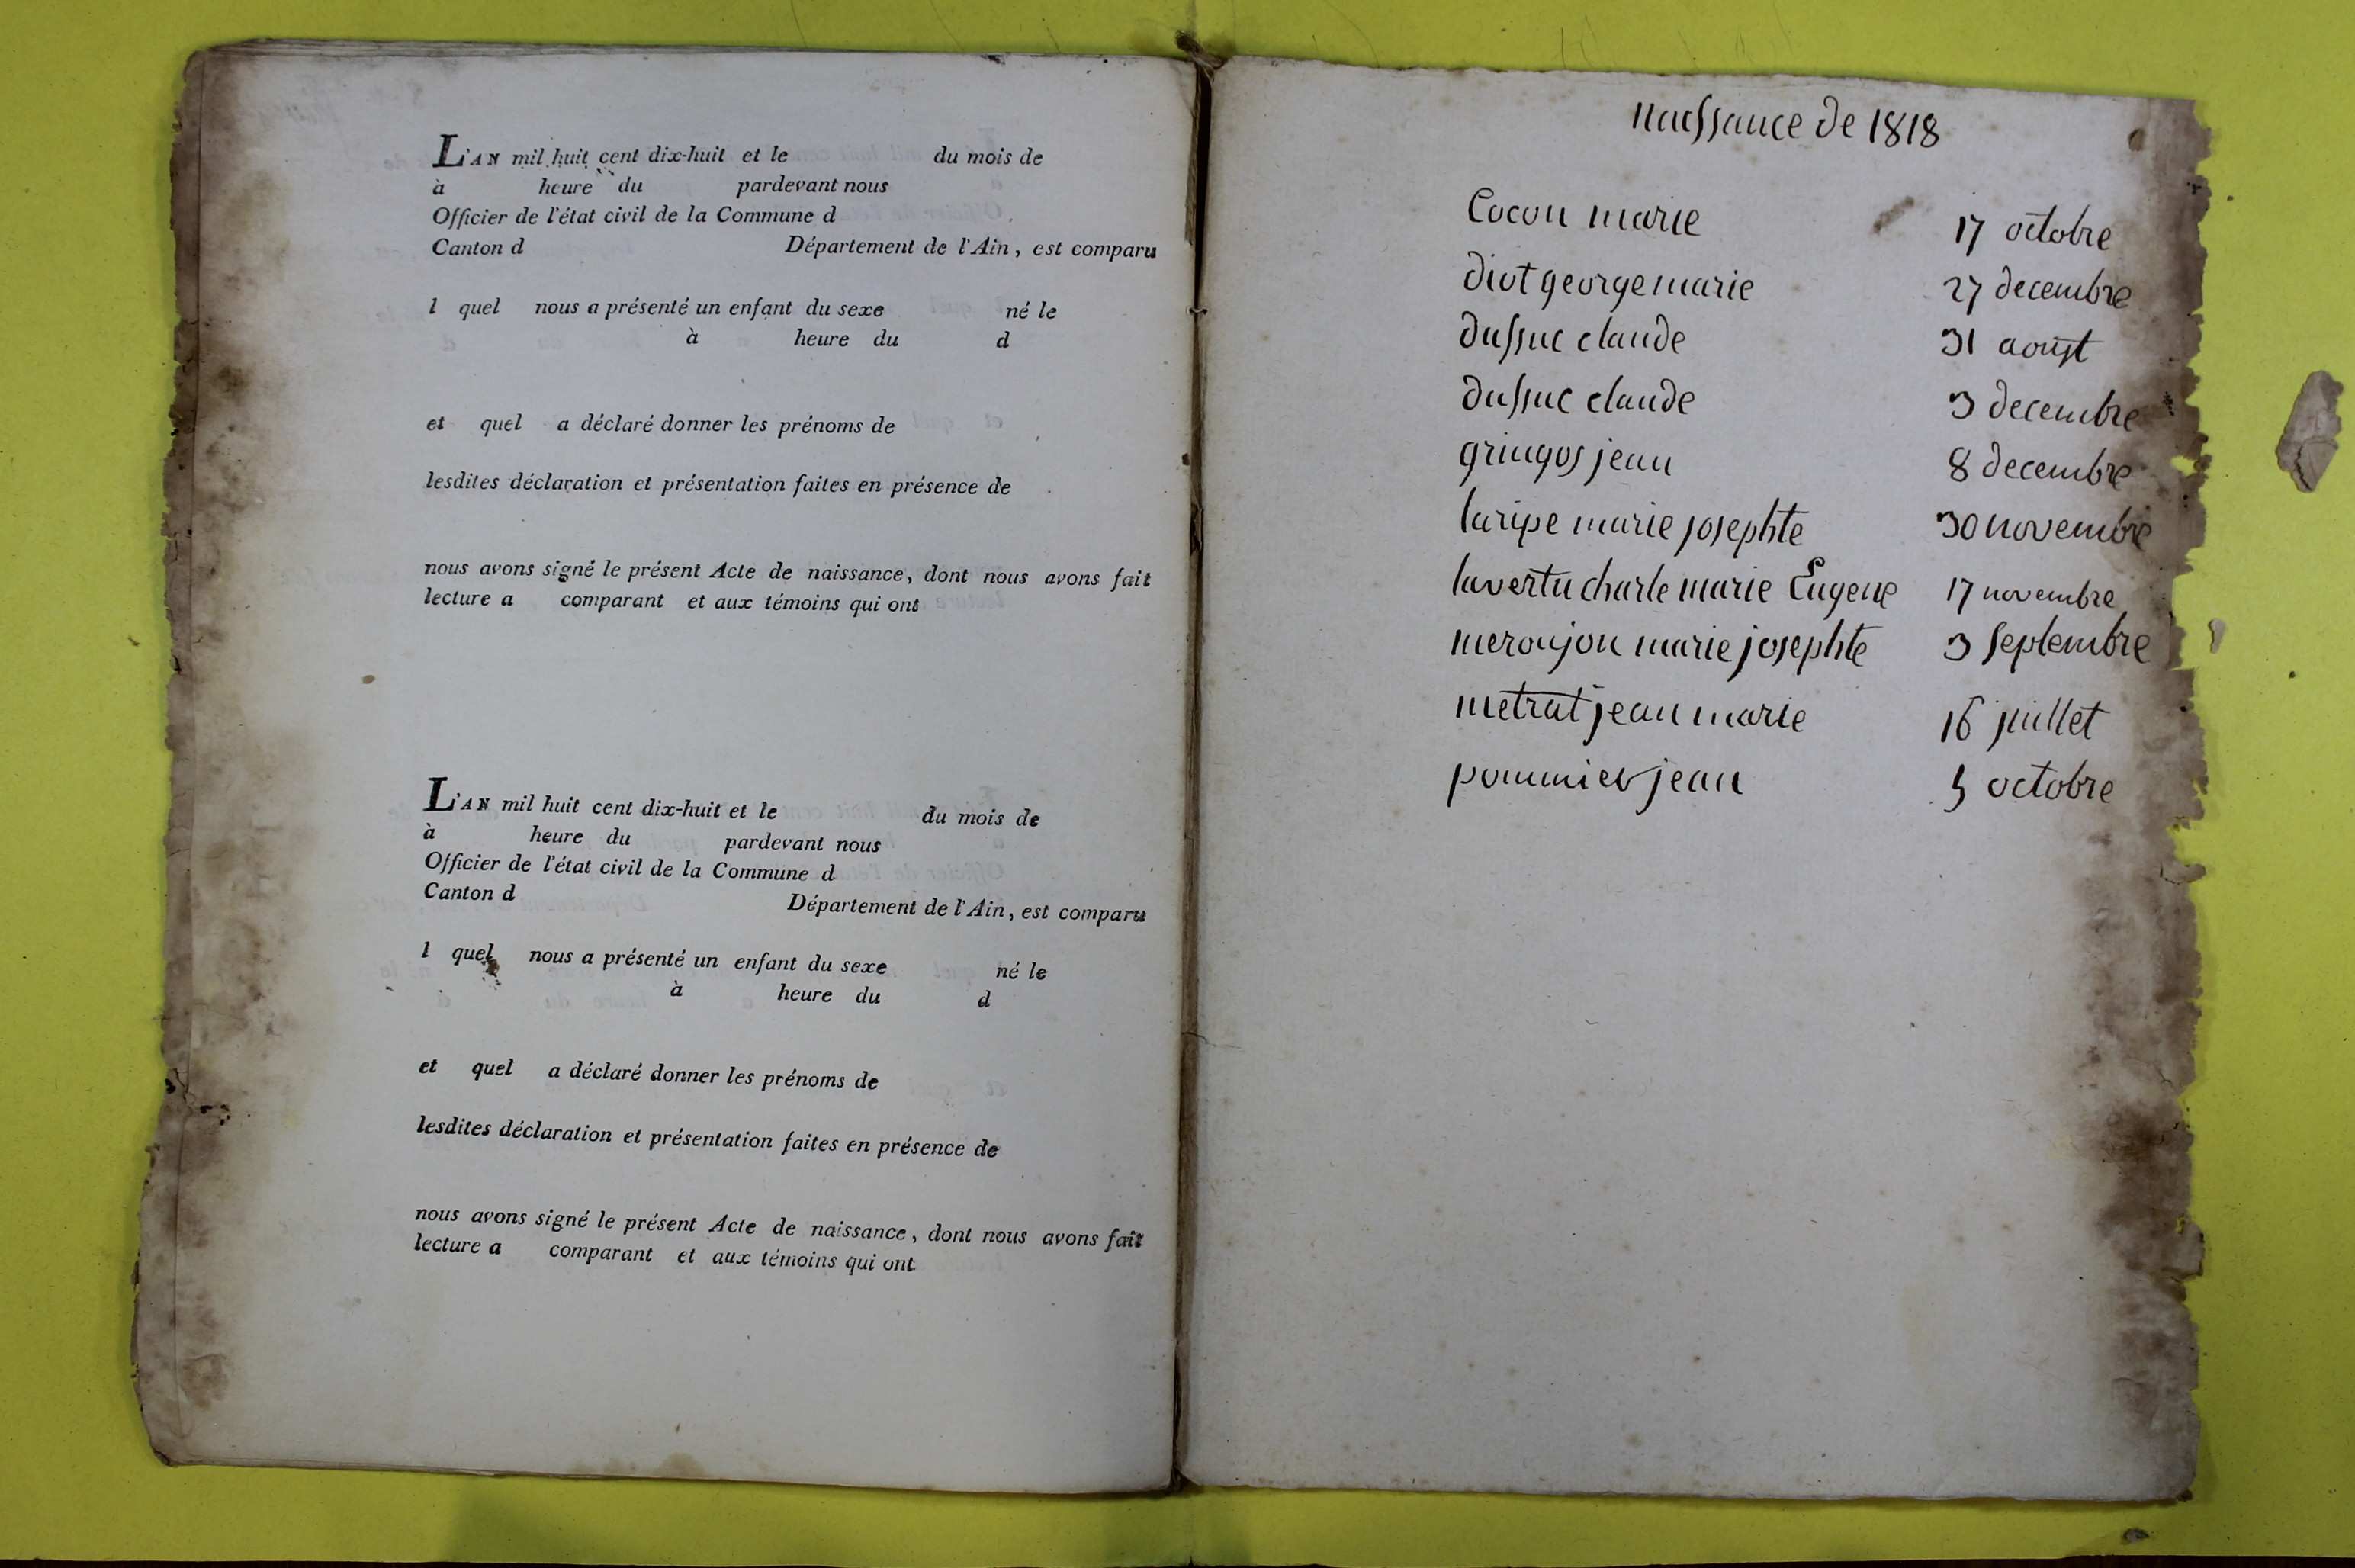 L'AN mil huit cent dix-huit et le du mois de
à heure du pardevant nous
Officier de l'état civil de la Commune d
Canton d Département de l'Ain, est comparu
l quel nous a présenté un enfant du sexe né le
à heure du d
et quel a déclaré donner les prénoms de
lesdites déclaration et présentation faites en présence de
nous avons signé le présent Acte de naissance, dont nous avons fait
lecture a comparant et aux témoins qui ont
L'AN mil huit cent dix-huit et le du mois de
à heure du pardevant nous
Officier de l'état civil de la Commune d
Canton d Département de l'Ain, est comparu
l quel nous a présenté un enfant du sexe né le
à heure du d
et quel a déclaré donner les prénoms de
lesdites déclaration et présentation faites en présence de
nous avons signé le présent Acte de naissance, dont nous avons fait
lecture a comparant et aux témoins qui ont
naissance de 1818
Cocon marie 17 octobre
diot george marie 27 decembre
dussuc claude 31 aoust
dussuc claude 3 decembre
gringos jean 8 decembre
laripe marie josephte 30 novembre
lavertu charle marie Eugene 17 novembre
marie josephte 3 septembre
metrat jean marie 16 juillet
pommier jean 5 octobre